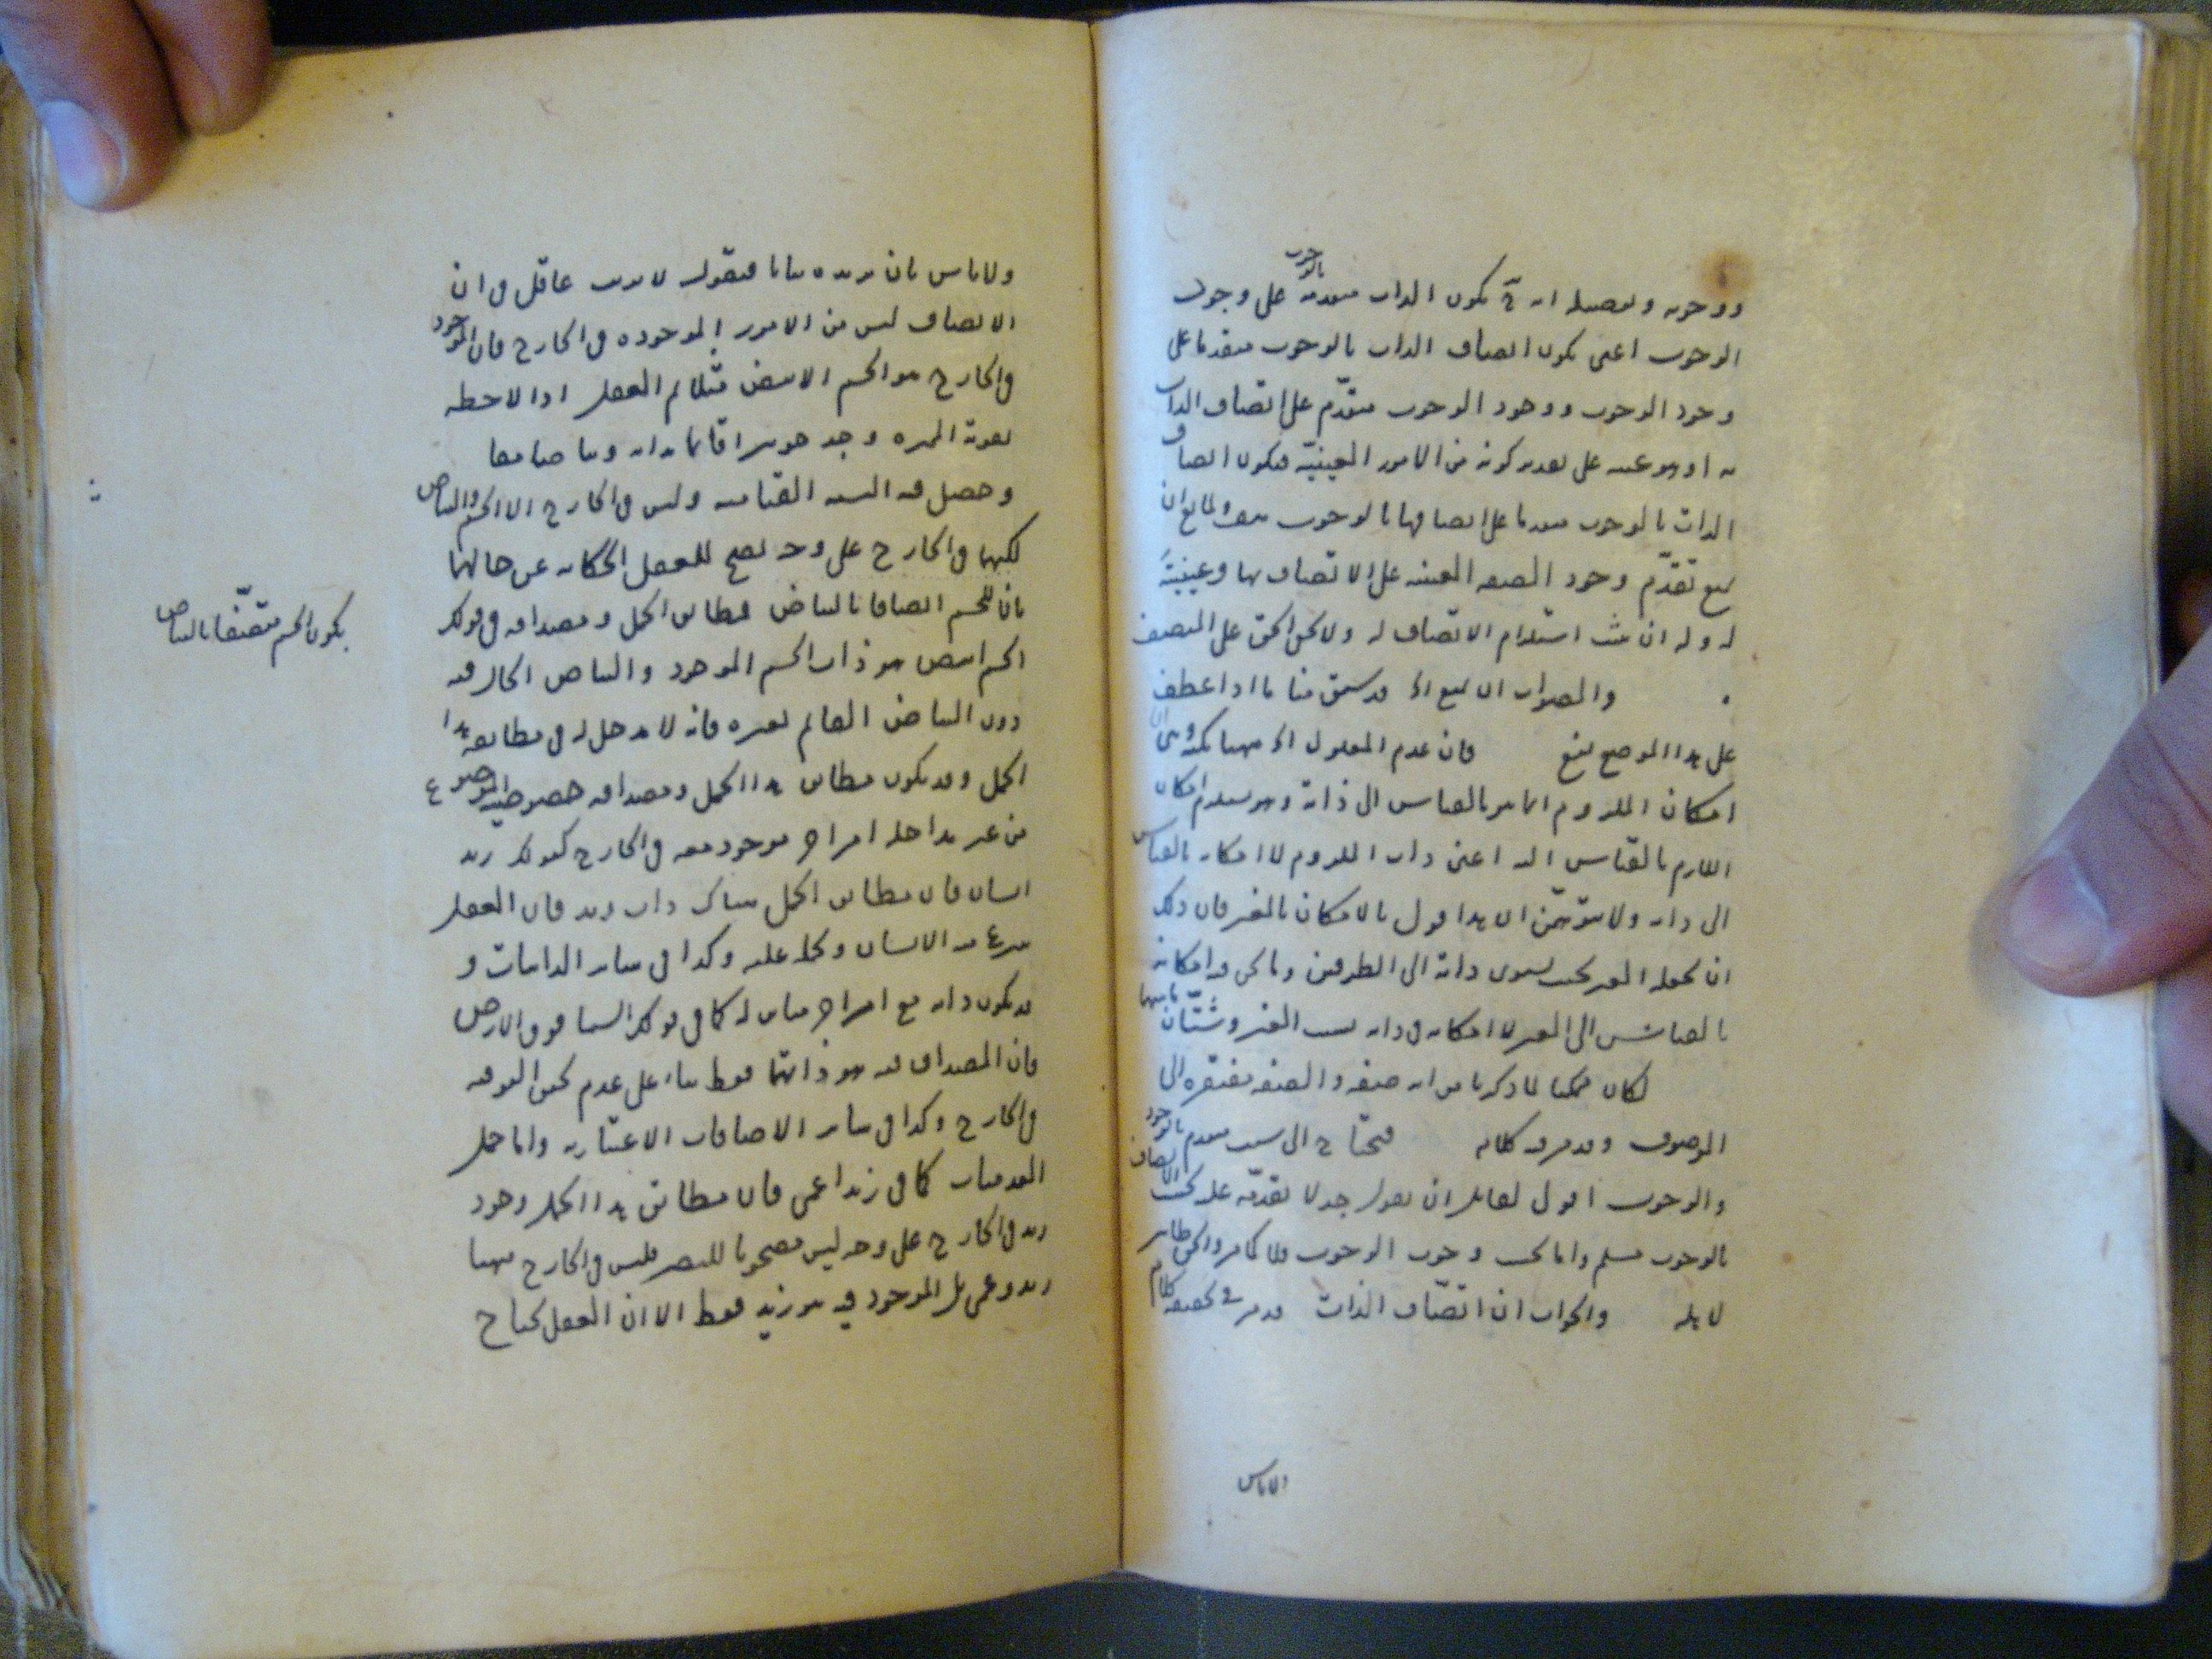 ووجوبه وتفصيله انه ح يكون الذات متقدمة بالوجوب على وجوب
الوجوب اعنى يكون اتصاف الذات بالوجوب متقدما على
وجود الوجوب ووجود الوجوب متقدّم على اتصاف الذات
به او هو عينه على تقدير كونه من الامور العينيّة فيكون اتصاف
الذات بالوجوب متقدما على اتصافها بالوجوب هف ولمانع ان
يمنع تقدّم وجود الصفة العينية على الاتصاف بها وعينيّته
له وله ان يثبت استلزام الاتصاف له ولا يخفى الحق على المنصف
والصواب ان يمنع الخ قد سبق منا ما اذا عطف
على هذا الموضع نفع فان عدم المعلول الخ
امكان الملزوم انما هو بالقياس الى ذاته وهو يستلزم امكان
اللازم بالقياس اليه اعنى ذات الملزوم لا امكانه بالقياس
الى ذاته ولا يتوهّمن ان هذا قول بالامكان بالغير فان ذلك
ان يجعله الغير بحيث يستوى ذاته الى الطرفين وما نحن فيه امكانه
بالقياس الى الغير لا امكانه فى ذاته بسبب الغير وشتّان ما بينهما
لكان ممكنا لما ذكرنا من انه صفة والصفة مفتقرة الى
الموصوف وقد مر فيه كلام فيحتاج الى سبب متقدم بالوجود
والوجوب اقول لقائل ان يقول جدلا تقدّمه عليه بحسب الاتصاف
بالوجوب مسلم واما بحسب وجوب الوجوب فلا كما مر والحق ظاهر
لاهله والجواب ان اتصاف الذات قد مر فى تحقيقه كلام
ولا باس
ولا باس بان نزيده بيانا فنقول لا يريب عاقل فى ان
الاتصاف ليس من الامور الموجودة فى الخارج فان الموجود
فى الخارج هو الجسم الابيض مثلا ثم العقل اذا لاحظه
بقوته المميزة وجد جوهرا قائما بذاته وبياضا معا
وحصل فيه النسبة القيامية وليس فى الخارج الا الجسم والبياض
لكنهما فى الخارج على وجه يصح للعقل الحكاية عن حالهما
بان للجسم اتصافا بالبياض فمطابق الحمل ومصداقه فى قولك
الجسم ابيض هو ذات الجسم الموجود والبياض الحال فيه
دون البياض القائم بغيره فانه لا مدخل له فى مطابقة هذا
الحمل وقد يكون مطابق هذا الحمل ومصداقه خصوصية الموضوع
من غير مداخلة امر اخر موجود معه فى الخارج كقولك زيد
انسان فان مطابق الحمل هناك ذات زيد فان العقل
ينزع منه الانسان ويحمله عليه وكذا فى سائر الذاتيات و
قد يكون ذاته مع امر اخر مباين له كما فى قولك السما فوق الارض
فان المصداق فيه هو ذاتهما فقط بناء على عدم تحقق الفوقية
فى الخارج وكذا فى سائر الاضافات الاعتبارية واما حمل
العدميات كما فى زيد اعمى فان مطابق هذا الحمل وجود
زيد فى الخارج على وجه ليس مصحوبا للبصر فليس فى الخارج ههنا
زيد وعمى بل الموجود فيه هو زيد فقط الا ان العقل يحتاج
يكون الجسم متصفا بالبياض